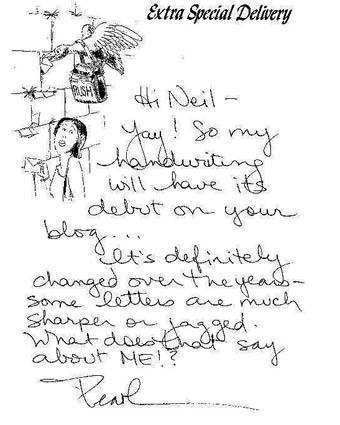 Extra Special Delivery
RUSH
Hi Neil -
Yay! So my
handwriting
will have its
debut on your
blog...
It's definitely
changed over the years-
some letters are much
sharper or jagged.
What does that say
about ME!?
Pearl